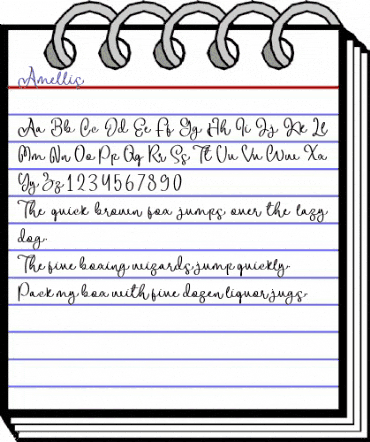 Amellis
Aa Bb Cc Dd Ee Ff Gg Hh Ii Jj Kk Ll
Mm Nn Oo Pp Qq Rr Ss Tt Uu Vv Ww Xx
Yy Zz 1234567890
The quick brown fox jumps over the lazy
dog.
The five boxing wizards jump quickly.
Pack my box with five dozen liquor jugs.